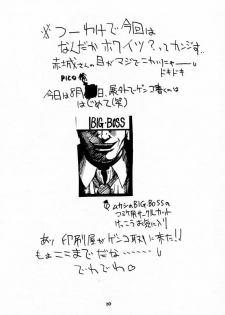 ※つーわけで今回は
なんだかホワイツ?ってカンジです..
赤城さんの目がマジでこわいにゃー
ドキドキ
PICO
今日は8月 日、最外でゲンコ書くのは
はじめて(笑)
BIG・BOSS
ムカシのBIG・BOSSの
コミケ用サークルカット
けっこうお気に入り
あっ 印刷屋がゲンコ取りに来た!!
もぉここまでだな……
でわでわ
20